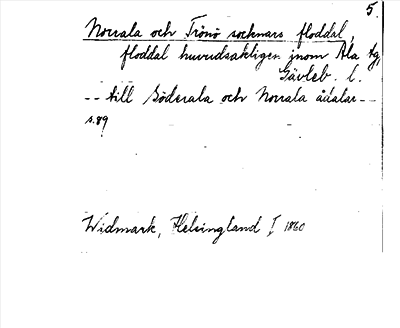 5.
Norrala och Trönö socknars floddal,
floddal huvudsakligen inom Ala tg,
Gävleb. l.
-- till Söderala och Norrala ådalar --
s.89
Widmark, Helsingland I 1860